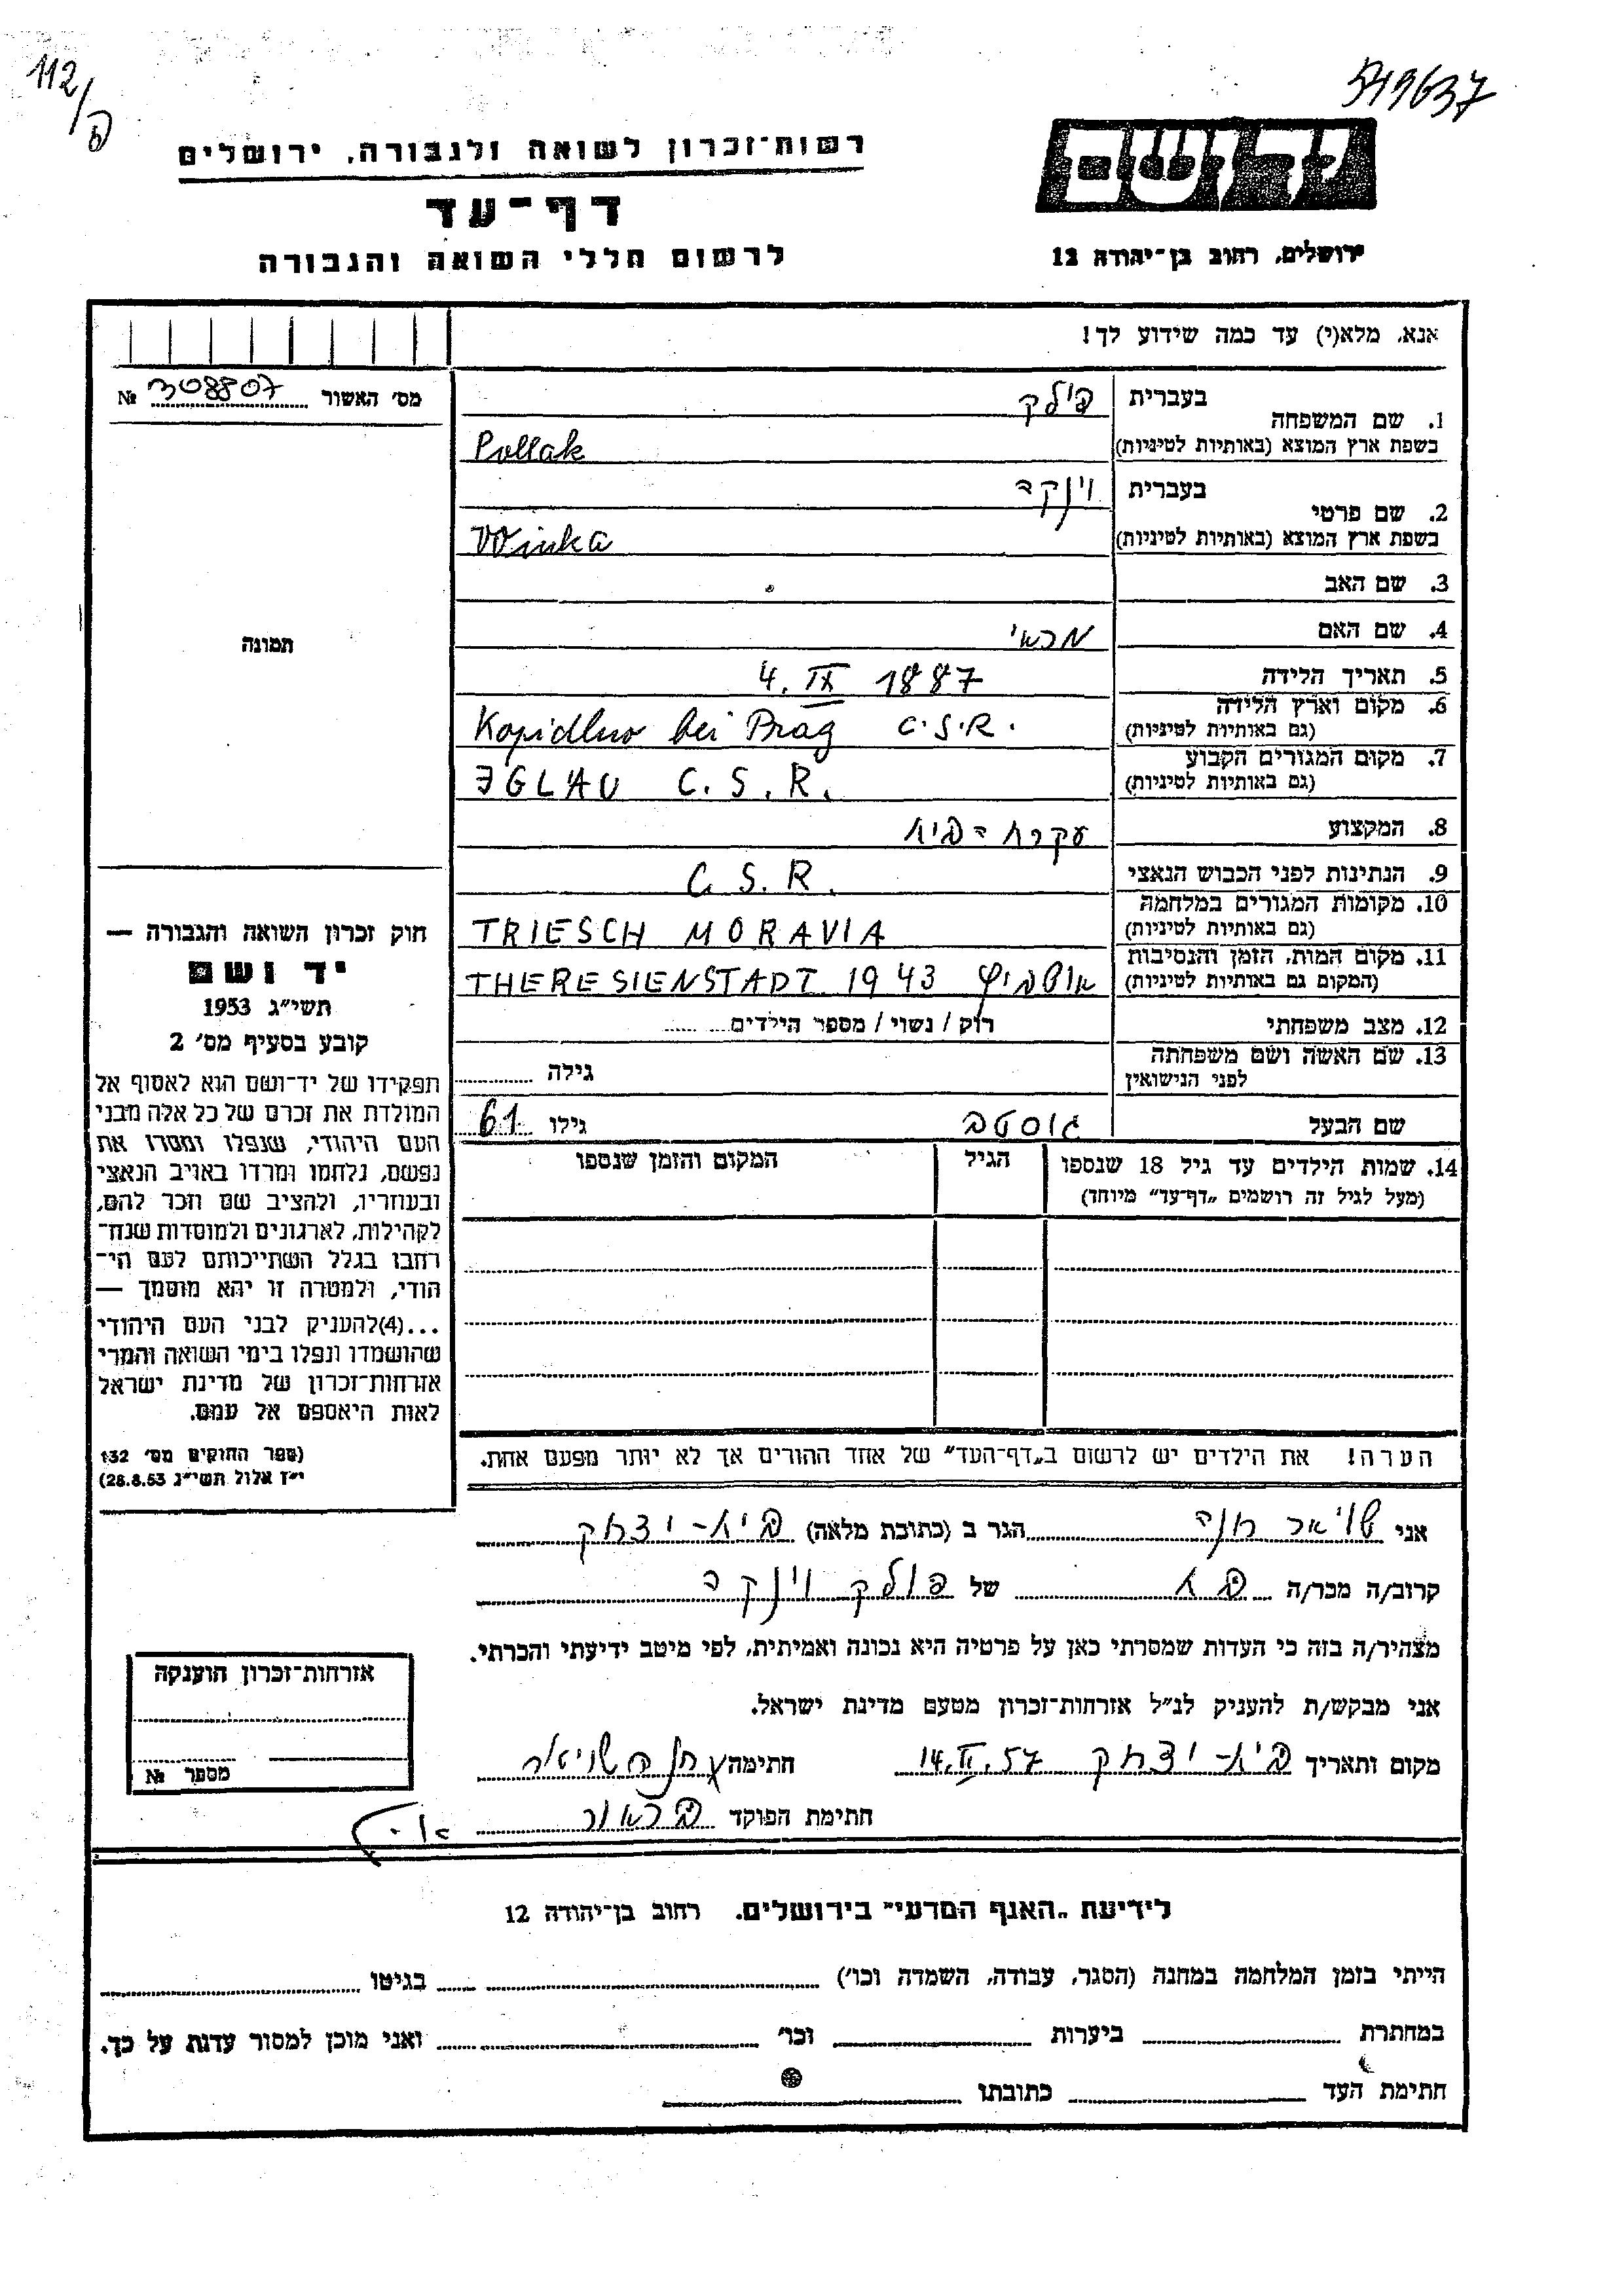 112/פ
549637
יד ושם
ירושלים, רחוב בן־יהודה 12
רשות־זכרון לשואה ולגבורה, ירושלים
דף־עד
לרשום חללי השואה והגבורה
אנא, מלא(י) עד כמה שידוע לך!
מס׳ האשור 308807 №
תמונה
חוק זכרון השואה והגבורה —
יד ושם
תשי״ג 1953
קובע בסעיף מס׳ 2
תפקידו של יד־ושם הוא לאסוף אל
המולדת את זכרם של כל אלה מבני
העם היהודי, שנפלו ומסרו את
נפשם, נלחמו ומרדו באויב הנאצי
ובעוזריו, ולהציב שם וזכר להם,
לקהילות, לארגונים ולמוסדות שנח־
רחבו בגלל השתייכותם לעם הי־
הודי, ולמטרה זו יהא מוסמך —
...(4)להעניק לבני העם היהודי
שהושמדו ונפלו בימי השואה והמרי
אזרחות־זכרון של מדינת ישראל
לאות היאספם אל עמם.
(ספר החוקים מס׳ 132
י״ז אלול תשי״ג 28.8.53)
1. שם המשפחה בעברית פולק
בשפת ארץ המוצא (באותיות לטיניות) Pollak
2. שם פרטי בעברית וינקה
בשפת ארץ המוצא (באותיות לטיניות) Winka
3. שם האב
4. שם האם מראי
5. תאריך הלידה 4. IX 1887
6. מקום וארץ הלידה (גם באותיות לטיניות) Kopidlno bei Prag C.S.R.
7. מקום המגורים הקבוע (גם באותיות לטיניות) IGLAU C.S.R.
8. המקצוע עקרת־הבית
9. הנתינות לפני הכבוש הנאצי C.S.R.
10. מקומות המגורים במלחמה (גם באותיות לטיניות) TRIESCH MORAVIA
11. מקום המות, הזמן והנסיבות (המקום גם באותיות לטיניות) אושביץ THERESIENSTADT 1943
12. מצב משפחתי רווק / נשוי / מספר הילדים
13. שם האשה ושם משפחתה לפני הנישואין גילה
שם הבעל גוסטב גילו 61
14. שמות הילדים עד גיל 18 שנספו (מעל לגיל זה רושמים „דף־עד״ מיוחד) הגיל המקום והזמן שנספו
הערה! את הילדים יש לרשום ב„דף־העד״ של אחד ההורים אך לא יותר מפעם אחת.
אני חנה הגר ב (כתובת מלאה) בית־יצחק
קרוב/ה מכר/ה בת של פולק וינקה
מצהיר/ה בזה כי העדות שמסרתי כאן על פרטיה היא נכונה ואמיתית, לפי מיטב ידיעתי והכרתי.
אני מבקש/ת להעניק לנ״ל אזרחות־זכרון מטעם מדינת ישראל.
מקום ותאריך בית־יצחק 14. II. 57 חתימה
חתימת הפוקד
אזרחות־זכרון הוענקה
מספר №
לידיעת „האגף המדעי״ בירושלים, רחוב בן־יהודה 12
הייתי בזמן המלחמה במחנה (הסגר, עבודה, השמדה וכו׳) בגיטו
במחתרת ביערות וכו׳ ואני מוכן למסור עדות על כך.
חתימת העד כתובתו